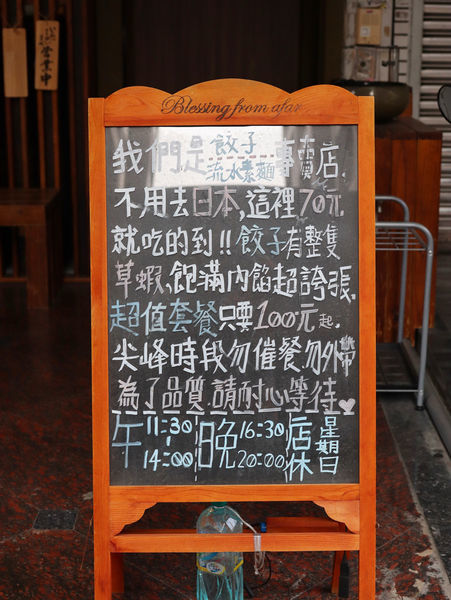 營業中
Blessing from afar
我們是 餃子 流水素麵 專賣店.
不用去日本,這裡70元
就吃的到!!餃子有整隻
草蝦,飽滿內餡超誇張.
超值套餐只要100元起.
尖峰時段勿催餐勿外帶
為了品質,請耐心等待♥
午 11:30 14:00 晚 16:30 20:00 店休 星期日